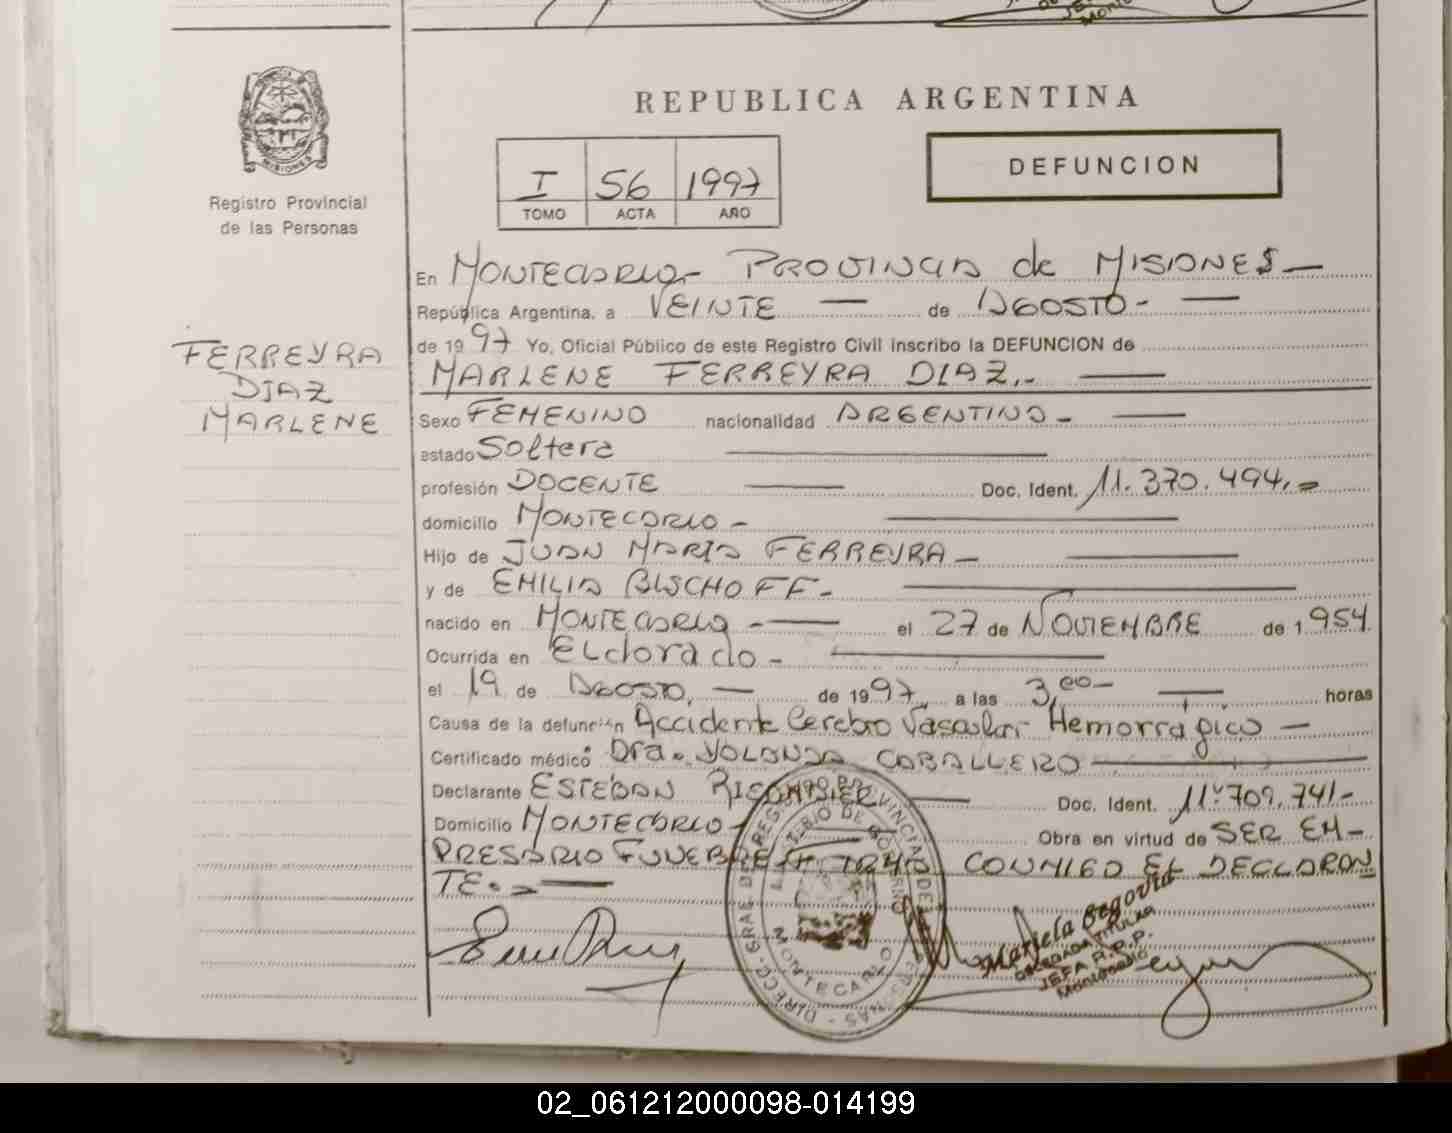 REPUBLICA ARGENTINA
MISIONES
Registro Provincial
de las Personas
I 56 1997
TOMO ACTA AÑO
DEFUNCION
En MONTECARLO - PROVINCIA de MISIONES -
República Argentina, a VEINTE — de AGOSTO - —
de 1997 Yo, Oficial Público de este Registro Civil inscribo la DEFUNCION de
FERREYRA
DIAZ
MARLENE
MARLENE FERREYRA DIAZ.- —
Sexo FEMENINO nacionalidad ARGENTINA - —
estado Soltera —
profesión DOCENTE — Doc. Ident. 11.370.494.-
domicilio MONTECARLO - —
Hijo de JUAN MARIA FERREYRA - —
y de EMILIA BISCHOFF - —
nacido en MONTECARLO - — el 27 de NOVIEMBRE de 1954
Ocurrida en ELdorado - —
el 19 de AGOSTO, — de 1997, a las 3,00 - — horas
Causa de la defunción Accidente Cerebro Vascular Hemorragico —
Certificado médico Dra. YOLANDA CABALLERO —
Declarante ESTEBAN — Doc. Ident. 11.709.741-
Domicilio MONTECARLO - — Obra en virtud de SER EM-
PRESARIO FUNEBRE. FIRMA CONMIGO EL DECLARAN
TE.- —
DIRECC. GRAL. DE REGISTRO PROVINCIAL DE LAS PERSONAS
MINISTERIO DE GOBIERNO
MONTECARLO
Mariela Segovia
DELEGADA TITULAR
JEFA R.P.P.
Montecarlo
02_061212000098-014199